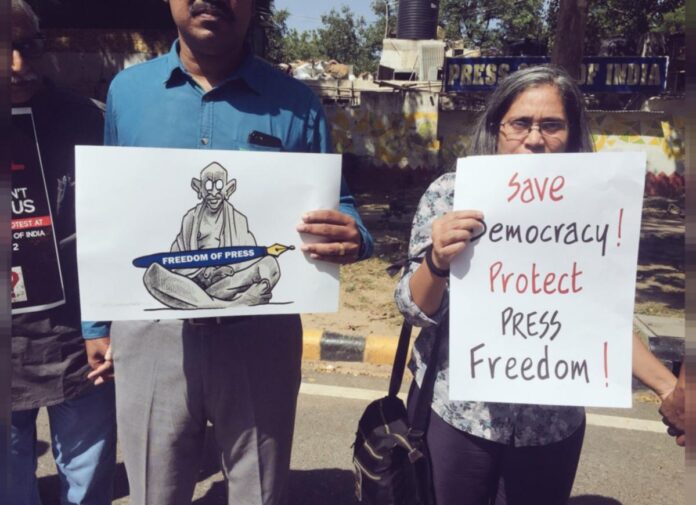 PRESS
OF INDIA
N'T
US
TEST AT
OF INDIA
2
FREEDOM OF PRESS
Save
Democracy!
Protect
PRESS
Freedom!